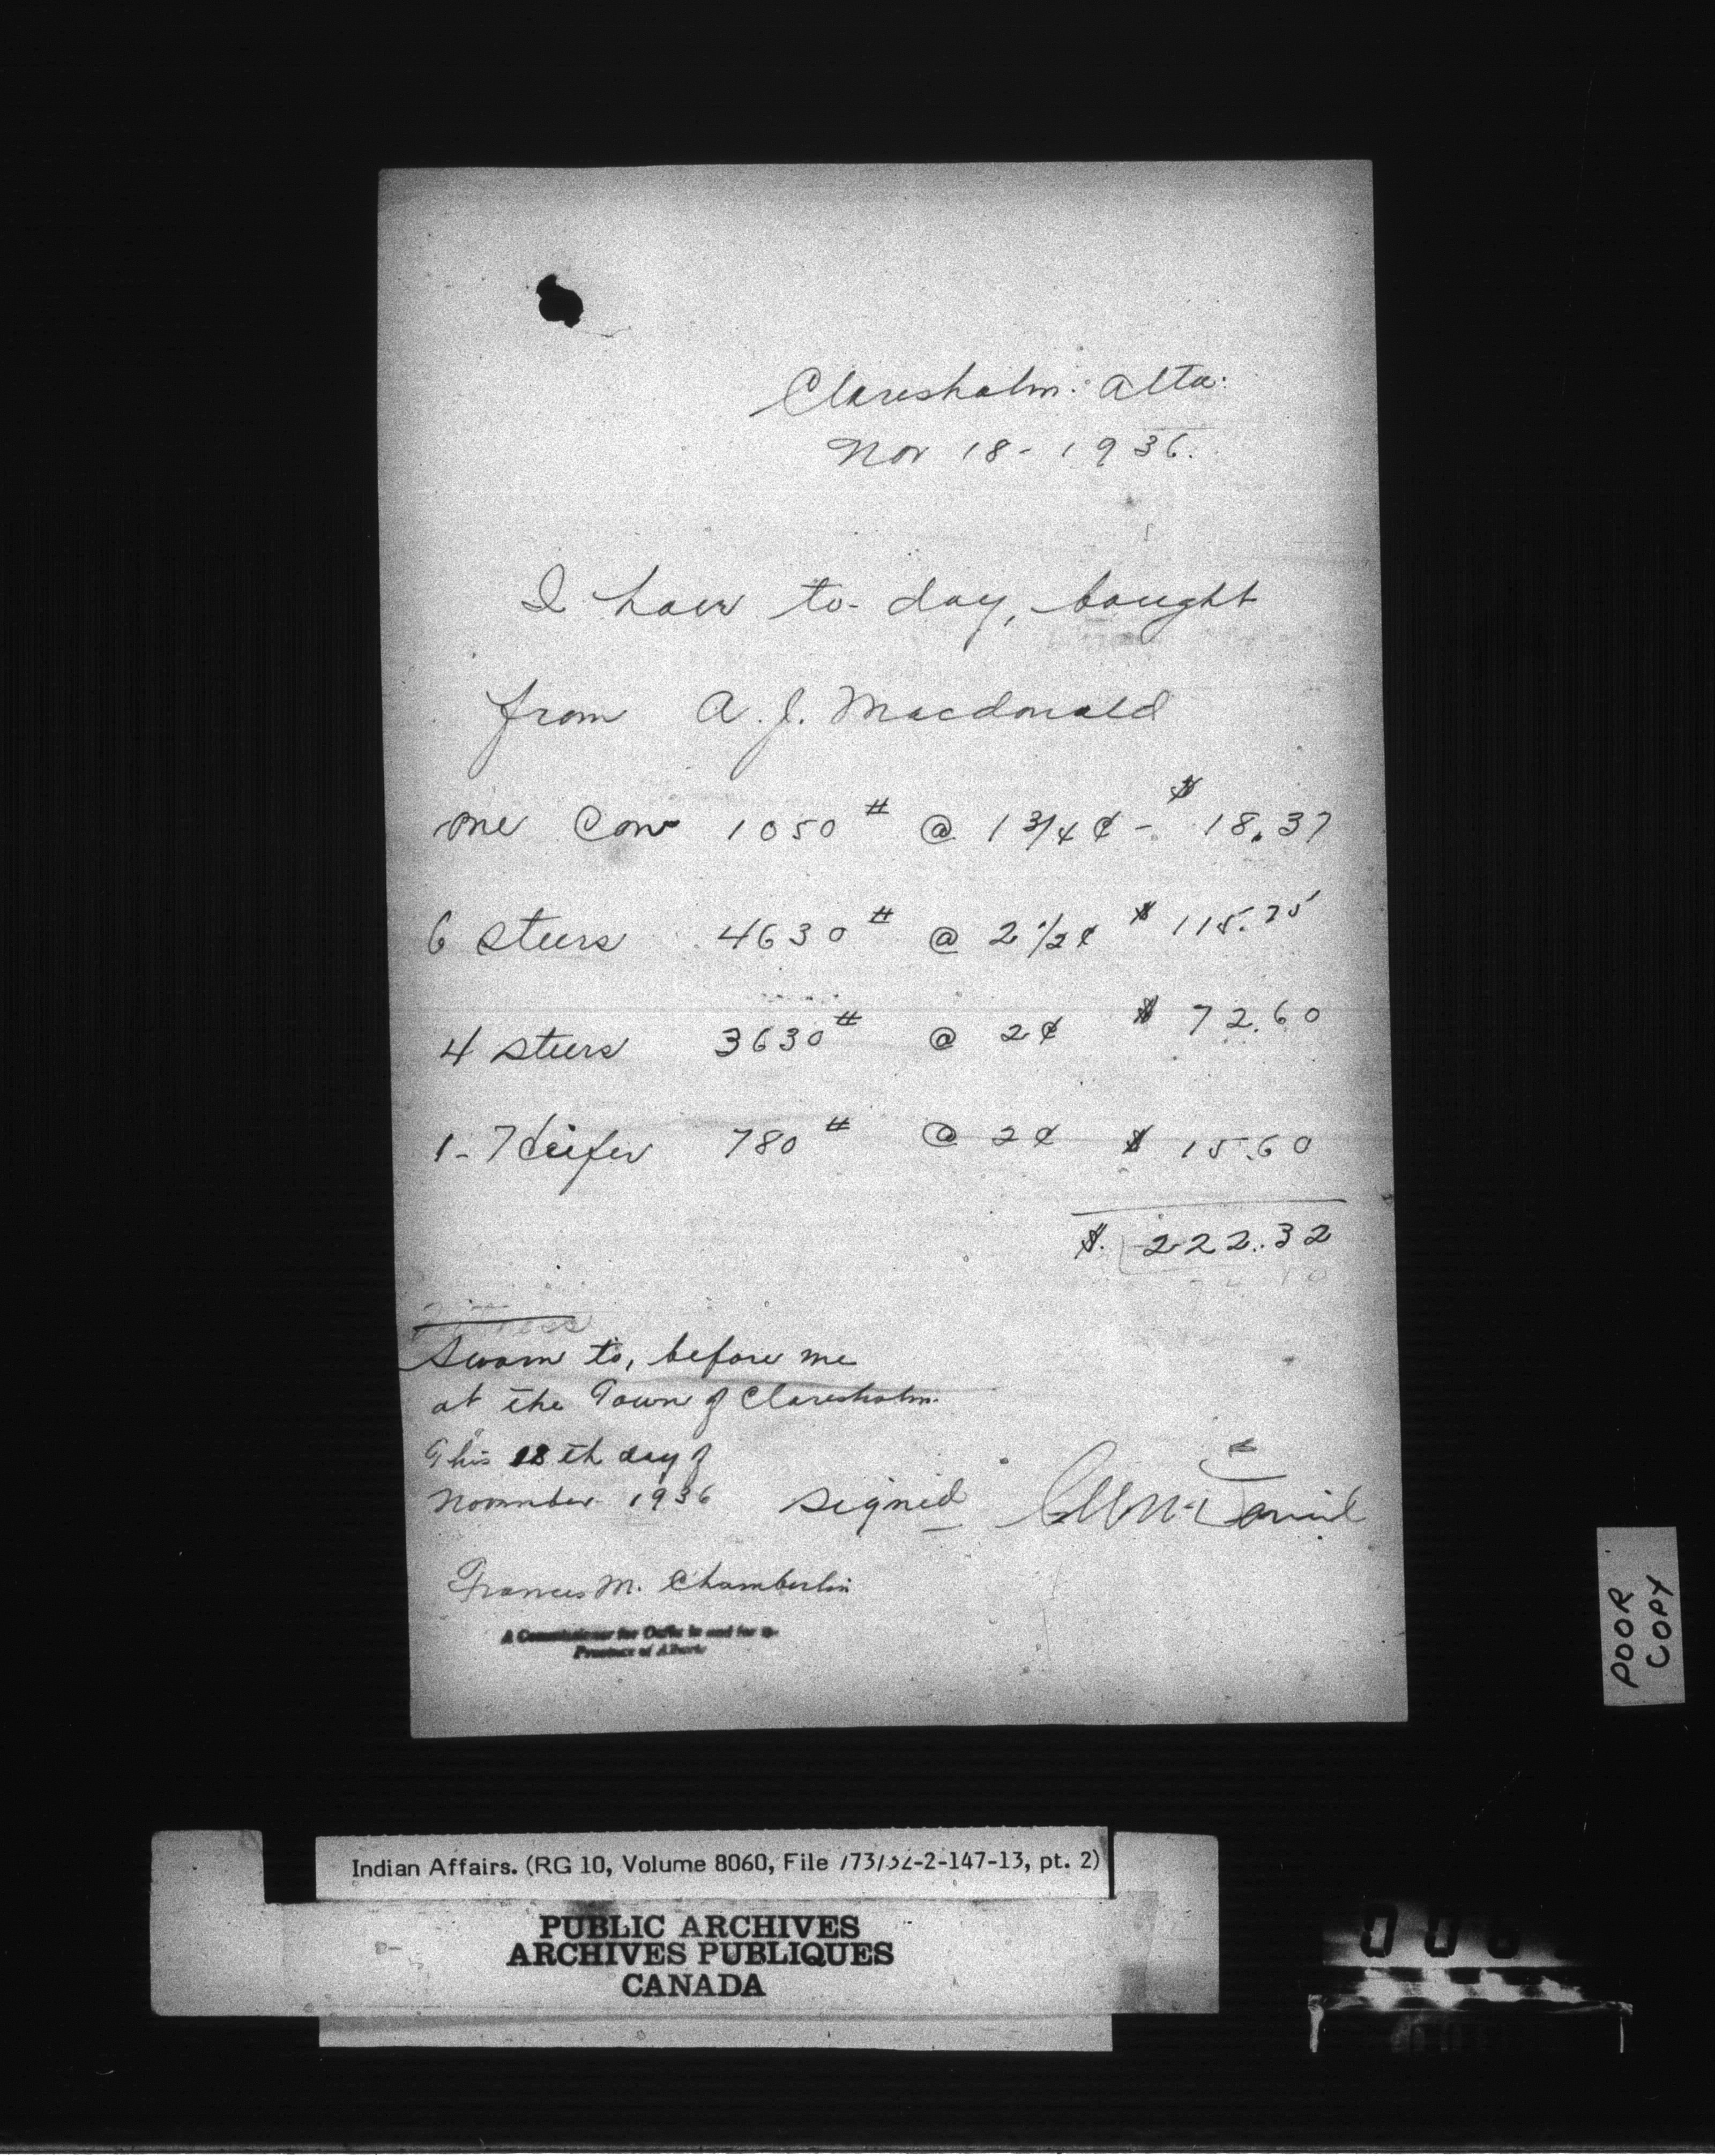 Claresholm. Alta.
Nov 18 - 1936.
I have to-day, bought
from A. J. Macdonald
one Cow 1050 # @ 1 3/4 ¢ - $ 18.37
6 Steers 4630 # @ 2 1/2 ¢ $ 115.75
4 Steers 3630 # @ 2 ¢ $ 72.60
1 - Heifer 780 # @ 2 ¢ $ 15.60
$. 222.32
Sworn to, before me
at the Town of Claresholm.
This 18th day of
November 1936 Signed
Frances M. Chamberlin
A Commissioner for Oaths in and for the
Province of Alberta
POOR
COPY
Indian Affairs. (RG 10, Volume 8060, File 773/32-2-147-13, pt. 2)
PUBLIC ARCHIVES
ARCHIVES PUBLIQUES
CANADA